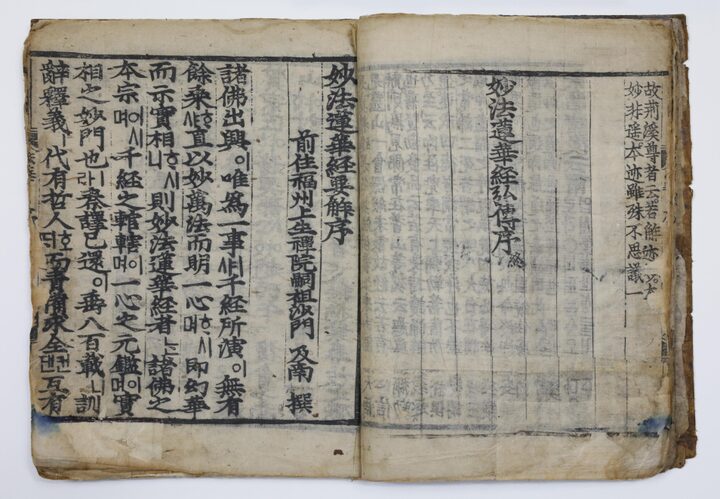 故荊溪尊者云若解迹妙本
妙非遙本迹雖殊不思議一
妙法蓮華經弘傳序 終
妙法蓮華經要解序
前住福州上生禪院嗣祖沙門 及南 撰
諸佛出興이唯為一事ㅣ샤千經所演이無有
餘乘ᄒᆞ샤直以妙萬法而明一心ᄒᆞ시며即幻華
而示實相ᄒᆞ시니則妙法蓮華經者ᄂᆞᆫ諸佛之
本宗이시며千經之輨轄이며一心之元鑑이며實
相之妙門也ㅣ라秦譯已還이垂八百載니訓
辭釋義 代有哲人호ᄃᆡ而 全 互有